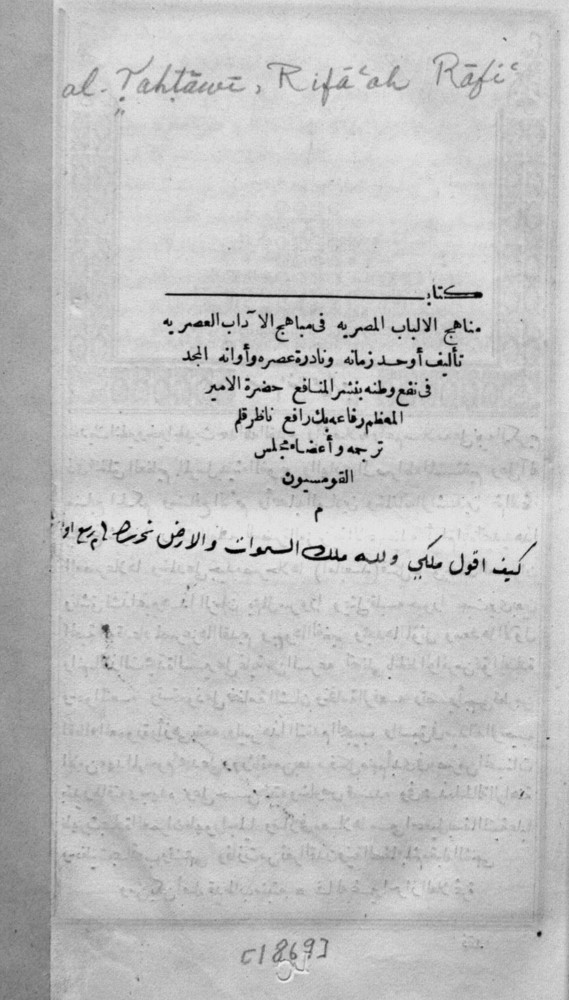 al-Ṭahṭāwī, Rifāʿah Rāfiʿ
كتاب
مناهج الالباب المصريه فى مباهج الآداب العصريه
تأليف أوحد زمانه ونادرة عصره وأوانه المجد
فى نفع وطنه بنشر المنافع حضرة الامير
المعظم رفاعه بك رافع ناظر قلم
ترجمه وأعضاء مجلس
القومسيون
م
كيف اقول ملكي ولله ملك السموات والارض
[1869]